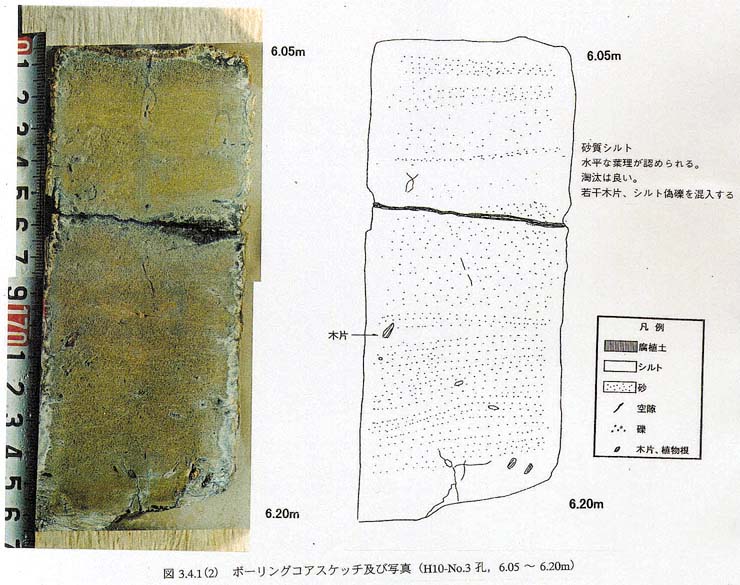 6.05m
6.05m
砂質シルト
水平な葉理が認められる。
淘汰は良い。
若干木片、シルト偽礫を混入する
木片
凡 例
腐植土
シルト
砂
空隙
礫
木片、植物根
6.20m
6.20m
0
1
2
3
4
5
6
7
9
170
1
2
3
4
5
6
図 3.4.1(2) ボーリングコアスケッチ及び写真 (H10-No.3 孔, 6.05 ～ 6.20m)